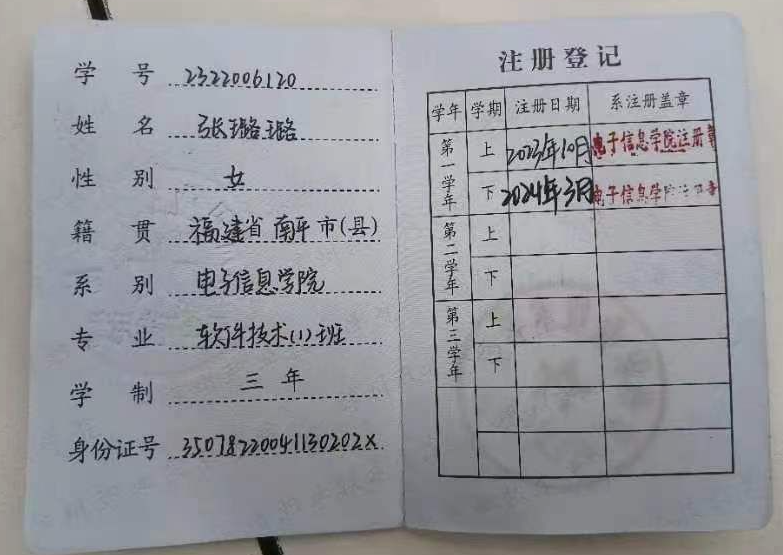 学 号 2322006120
姓 名 张璐璐
性 别 女
籍 贯 福建省南平市(县)
系 别 电子信息学院
专 业 软件技术(1)班
学 制 三年
身份证号 35078220041130202X
注册登记
学年 学期 注册日期 系注册盖章
第一学年 上 2023年10月 电子信息学院注册章
下 2024年3月 电子信息学院注册章
第二学年 上
下
第三学年 上
下